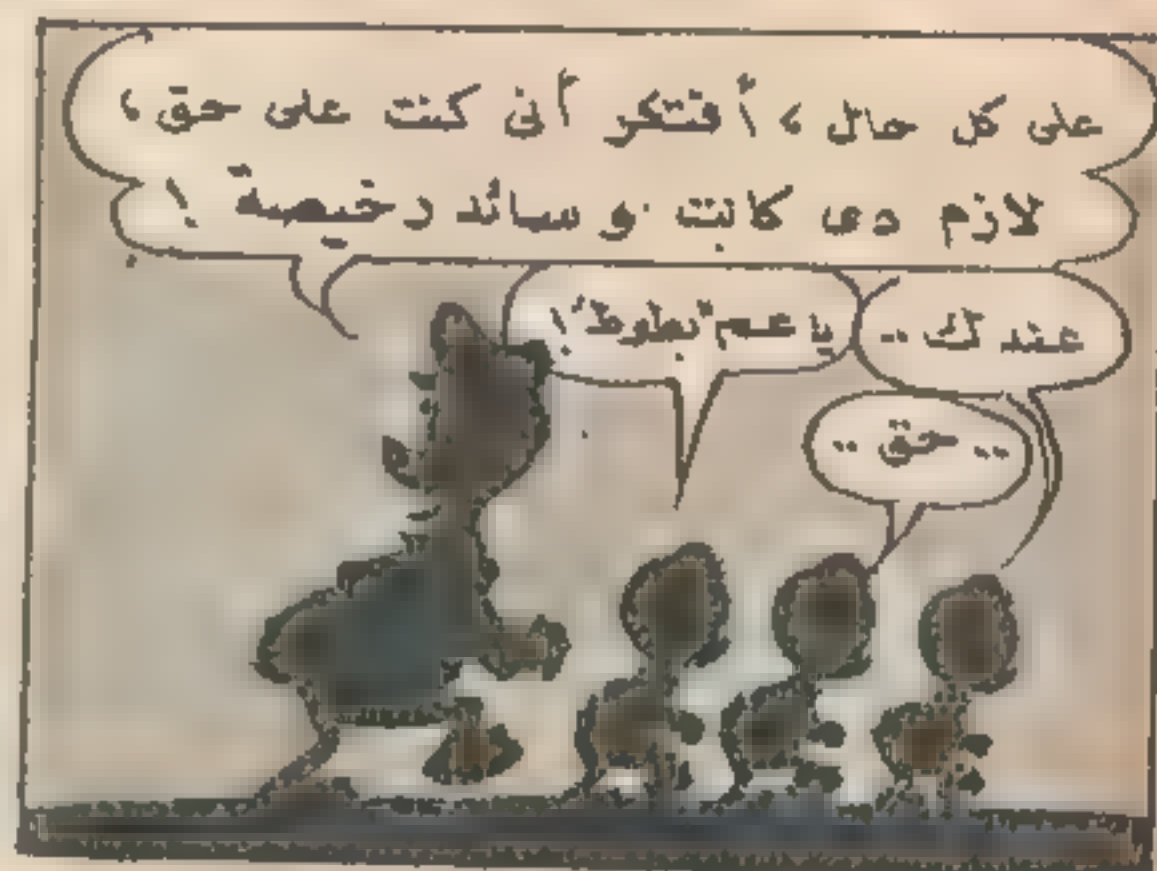 على كل حال ، أفتكر أنى كنت على حق ،
لازم دى كانت وسائد رخيصة !
عندك ..
.. حق ..
يا عم "بطوط" !